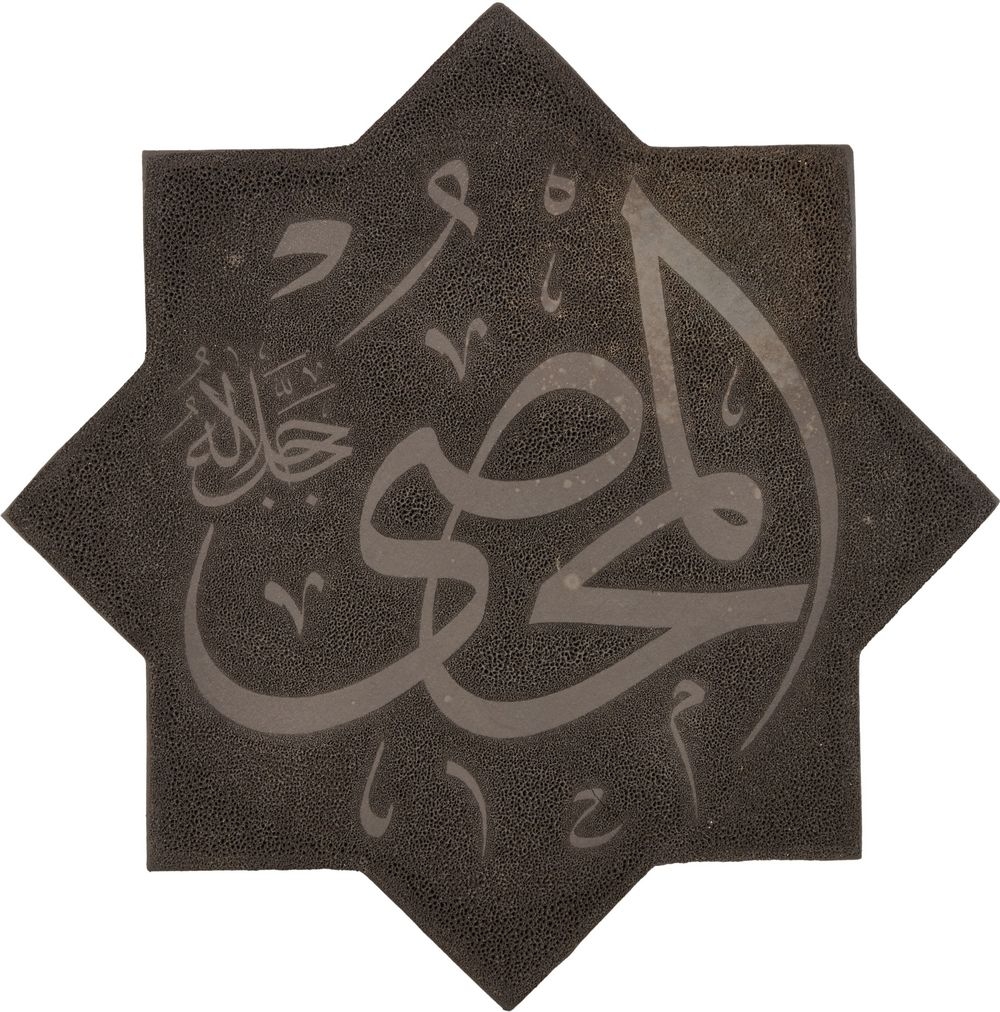 المحصى
جل جلاله